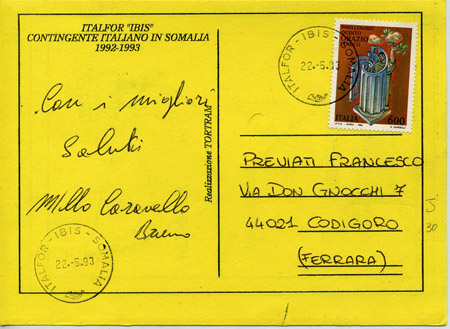 ITALFOR "IBIS"
CONTINGENTE ITALIANO IN SOMALIA
1992-1993
Con i migliori
Saluti
Realizzazione TORTRAM
ITALFOR - IBIS - SOMALIA
22.-5.93
BIMILLENARIO
QUINTO
ORAZIO
FLACCO
ITALIA
600
PREVIATI FRANCESCO
VIA DON GNOCCHI 7
44021 CODIGORO
(FERRARA)
30
ITALFOR - IBIS - SOMALIA
22.-5.93